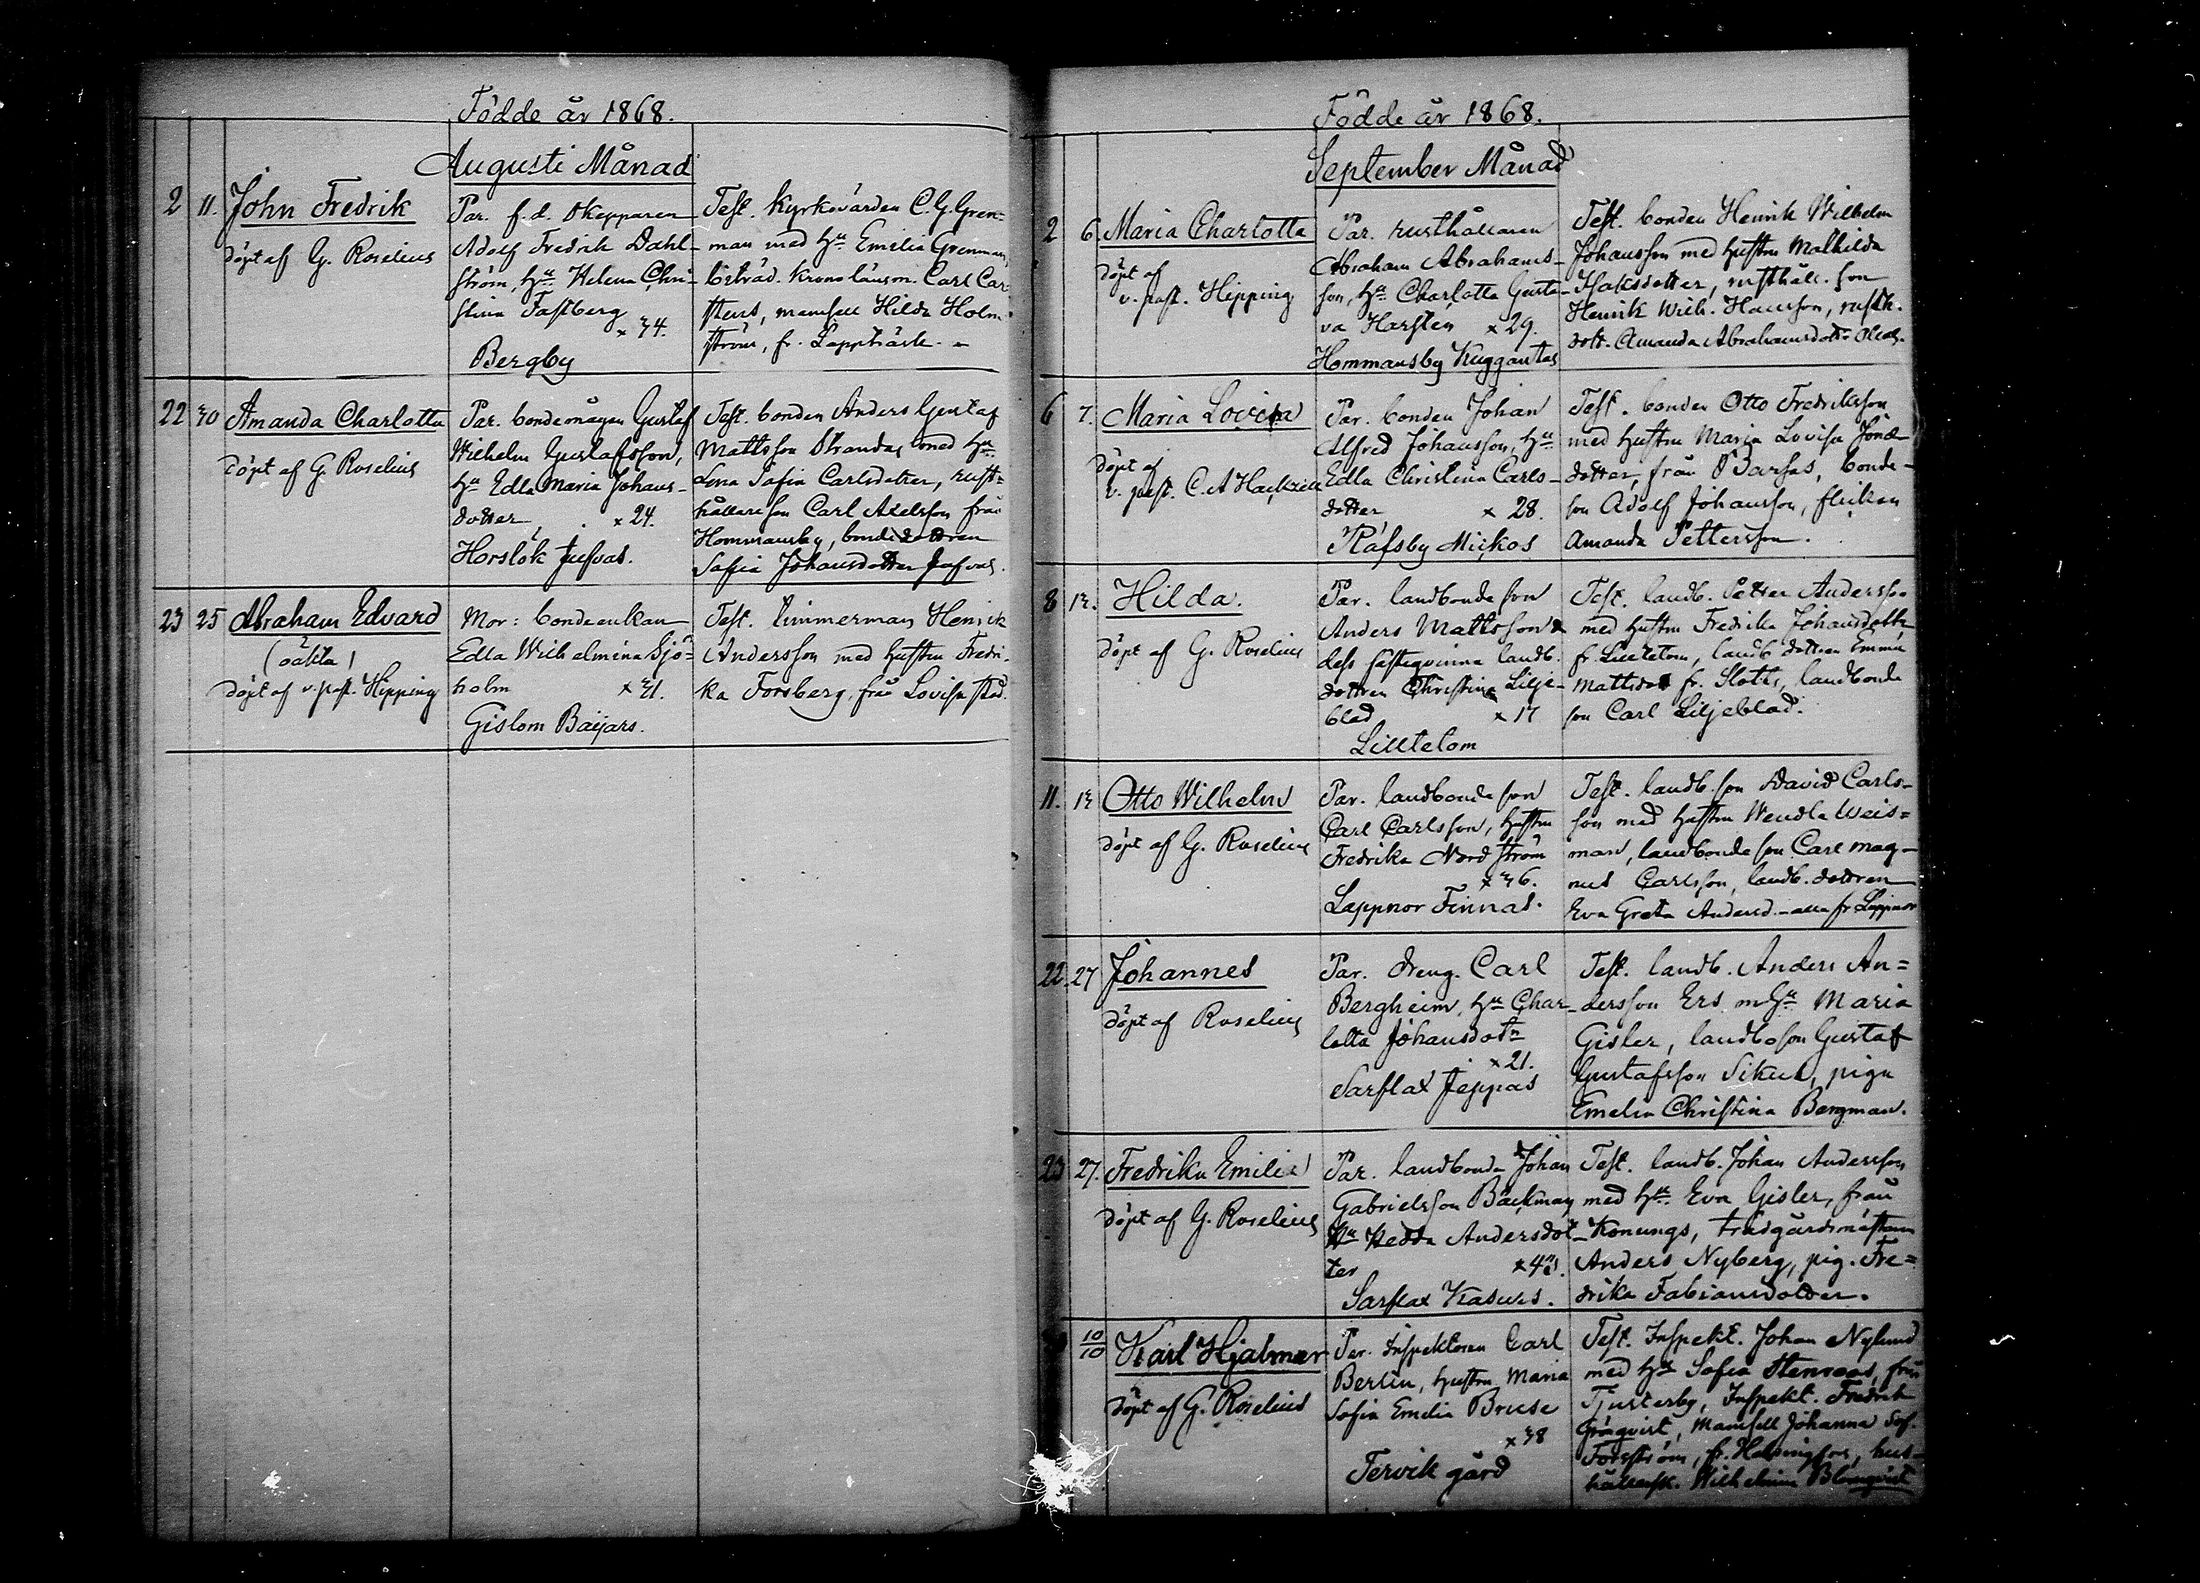 Födde år 1868.
Augusti Månad
2 11. John Fredrik
döpt af G. Roselius
Par. f. d. Skepparen
Adolf Fredrik Dahl-
ström, Hu Helena Chri-
stina Fastberg
x 34.
Bergby
Test. Kyrkovärden C. G. Gren-
man med Hu Emilia Grenman,
biträd. Kronolänsm. Carl Car-
stens, mamsell Hilda Holm-
ström, fr. Lappträsk.
22 30 Amanda Charlotta
döpt af G. Roselius
Par. bondemågen Gustaf
Wilhelm Gustafsson,
Hu Edla Maria Johans-
dotter x 24.
Horslök Jufvas.
Test. bonden Anders Gustaf
Mattsson Strandas med Hu
Lena Sofia Carlsdotter, rust-
hållareson Carl Axelsson från
Hommansby, bondedottren
Sofia Johansdotter Jufvas.
23 25 Abraham Edvard
(oäkta)
döpt af v. past. Hipping
Mor: bondeenkan
Edla Wilhelmina Sjö-
holm x 31.
Gislom Baijars.
Test. timmerman Henrik
Andersson med hustru Fredri-
ka Forsberg, från Lovisa stad.
Födde år 1868.
September Månad
2 6. Maria Charlotta
döpt af
v. past. Hipping
Par. rusthållaren
Abraham Abrahams-
son, Hu Charlotta Gusta-
va Harstén x 29.
Hommansby Kuggantas
Test. bonden Henrik Wilhelm
Johansson med hustru Mathilda
Isaksdotter, rusthåll. son
Henrik Wilh. Hansson, rusth.
dott. Amanda Abrahamsdott.
6 7. Maria Lovisa
döpt af
v. past. C. A
Par. bonden Johan
Alfred Johansson, Hu
Edla Christina Carls-
dotter x 28.
Räfsby Mickos
Test. bonden Otto Fredriksson
med hustru Maria Lovisa Jonæ-
dotter, från Barsas, bonde-
son Adolf Johansson, flickan
Amanda Pettersson.
8 13. Hilda.
döpt af G. Roselius
Par. landbondeson
Anders Mattsson &
dess fästeqvinna landb.
dottren Christina Lilje-
blad x 17
Lilltelom
Test. landb. Petter Andersson
med hustru Fredrika Johansdotter
fr. Lilltelom, landb. dottren Emma
Mattsdot fr. Slotts, landbonde
son Carl Liljeblad.
11. 13 Otto Wilhelm
döpt af G. Roselius
Par. landbondeson
Carl Carlsson, hustru
Fredrika Nordström
x 36.
Lappnor Finnas.
Test. landb. son David Carls-
son med hustru Wendla Weis-
man, landbondeson Carl Mag-
nus Carlsson, landb. dottren
Eva Greta Andersd. - alla fr. Lappnor
22. 27 Johannes
döpt af Roselius
Par. dreng. Carl
Bergheim, Hu Char-
lotta Johansdotn
x 21.
Sarflax Jeppas
Test. landb. Anders An-
dersson Ers m Hu Maria
Gisler, landboson Gustaf
Gustafsson Sikus, piga
Emelia Christina Bergman.
23 27. Fredrika Emilia
döpt af G. Roselius
Par. landbonde Johan
Gabrielsson Bäckman,
Hu Hedda Andersdot-
ter x 43.
Sarflax Kasurs.
Test. landb. Johan Andersson
med Hu. Eva Gisler, från
Konungs, trädgårdsmästaren
Anders Nyberg, pig. Fre-
drika Fabiansdotter.
10/10 Karl Hjalmar
döpt af G. Roselius
Par. Inspektoren Carl
Berlin, hustru Maria
Sofia Emilia Bruse
x 38
Tervik gård
Test. Inspekt. Johan Nylund
med Hu Sofia Stenroos, från
Tjusterby, Inspekt. Fredrik
Grönqvist, Mamsell Johanna Sof.
Forsström, fr. Helsingfors, hus-
hållersk. Wilhelmina Blomqvist